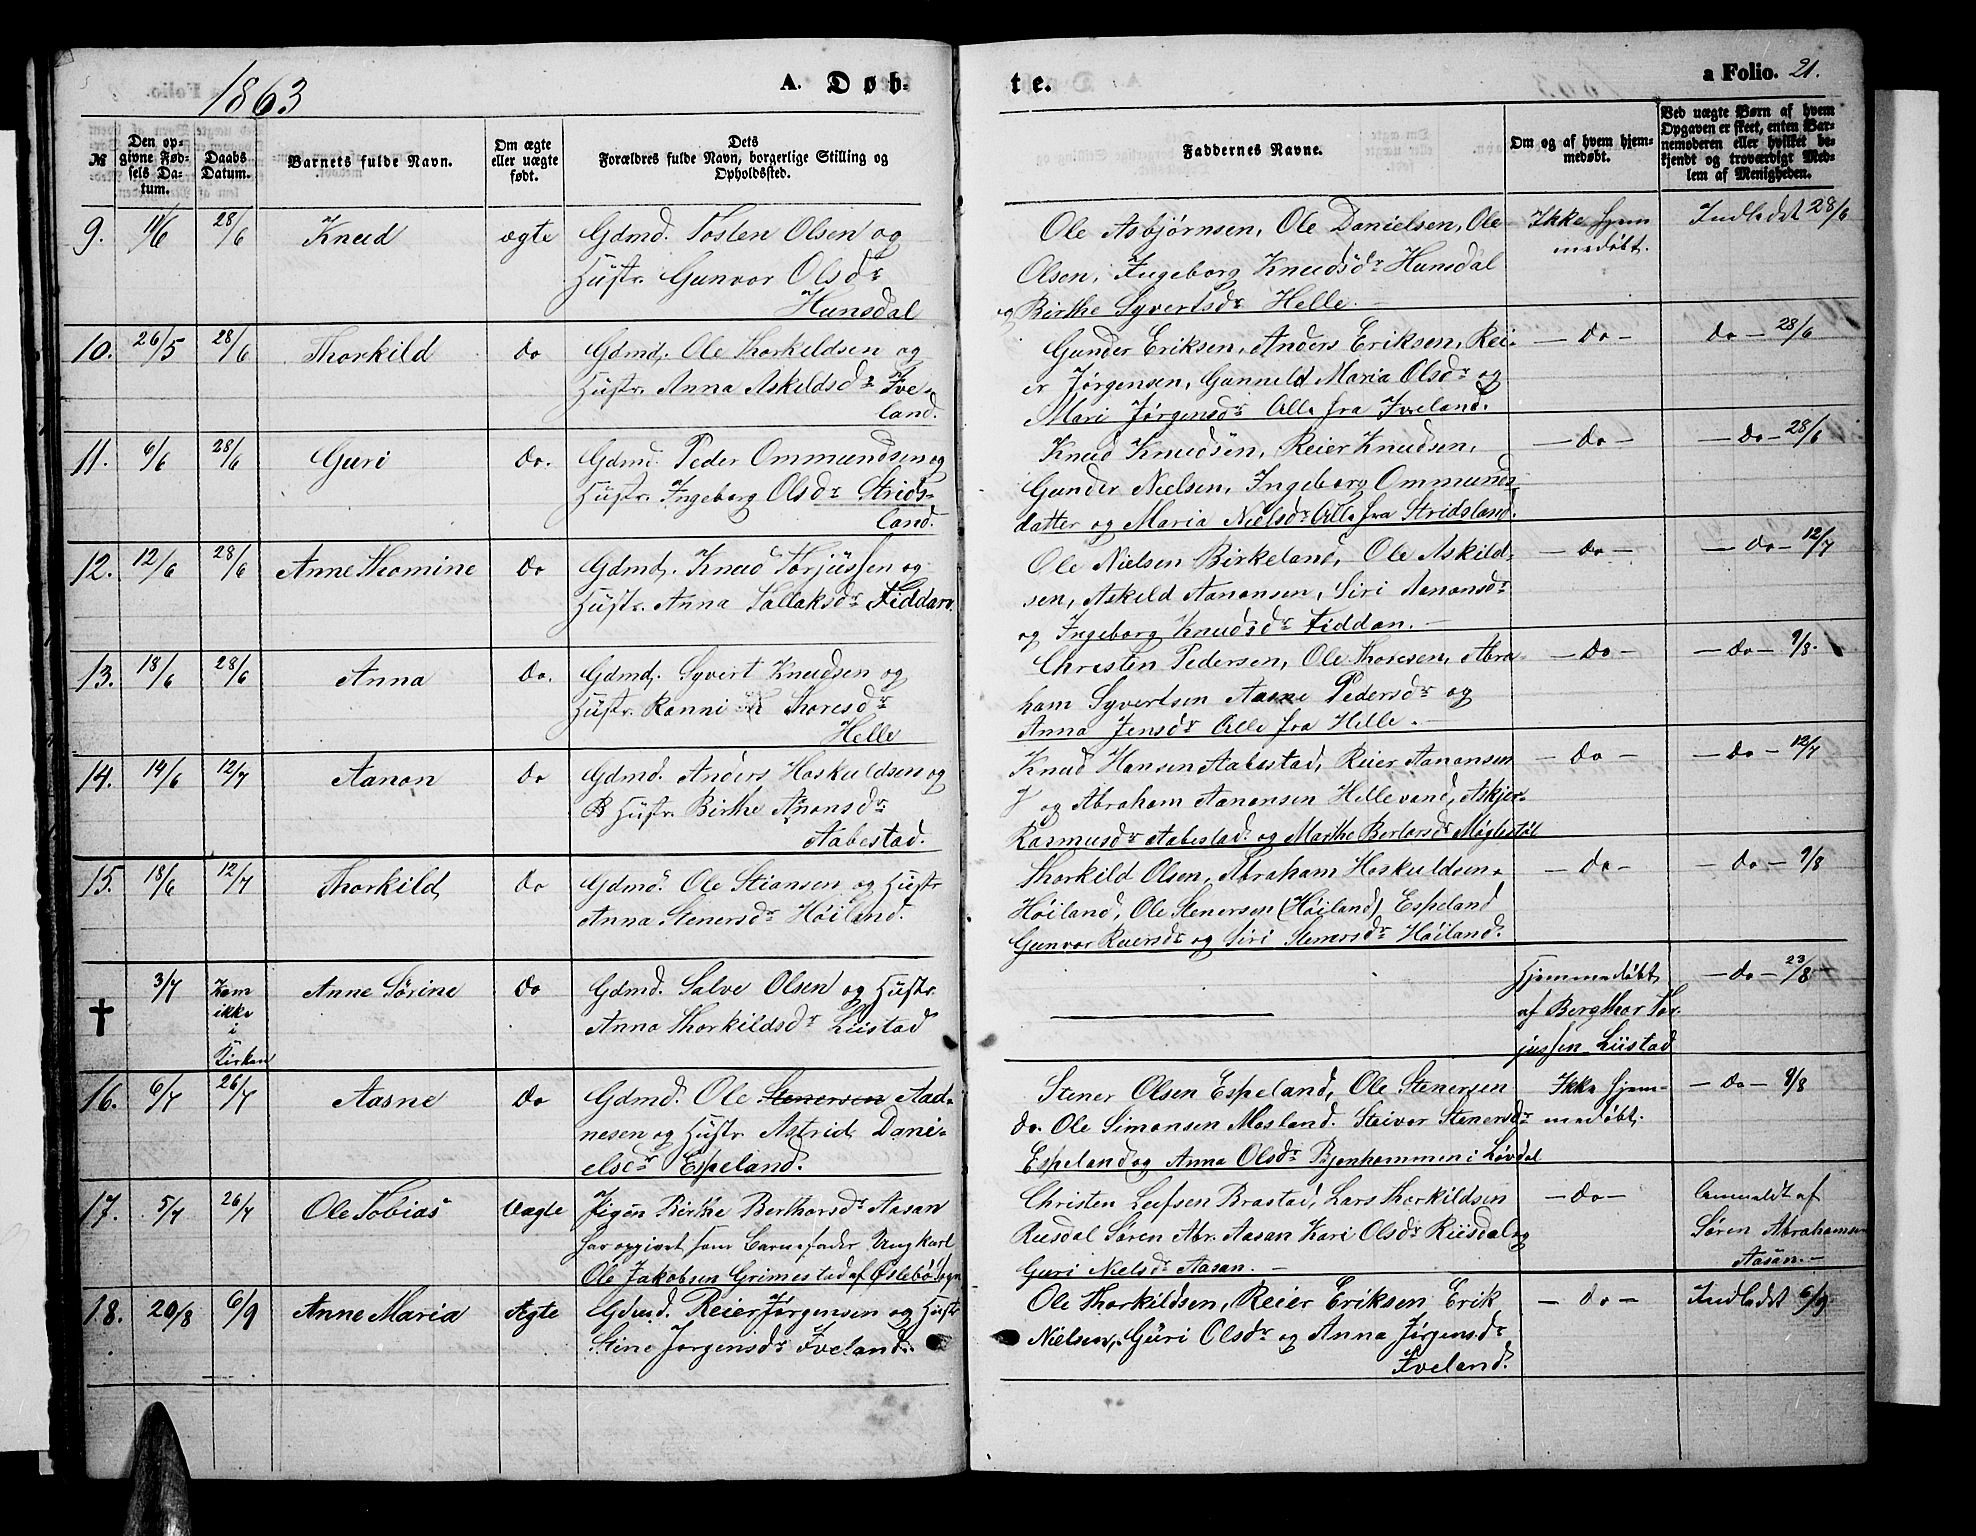 1863
A. Døb-
te.
a Folio. 21.
№
Den op-
givne Fød-
sels Da-
tum.
Daabs
Datum.
Barnets fulde Navn.
Om ægte
eller uægte
født.
Dets
Forældres fulde Navn, borgerlige Stilling og
Opholdssted.
Faddernes Navne.
Om og af hvem hjem-
medøbt.
Ved uægte Børn af hvem
Opgaven er skeet, enten Bar-
nemoderen eller hvilket be-
kjendt og troværdigt Med-
lem af Menigheden.
9. 11/6 28/6 Knud ægte Gdmd. Tosten Olsen og
Hustr. Gunvor Olsdr
Hunsdal
Ole Asbjørnsen, Ole Danielsen, Ole
Olsen, Ingeborg Knudsdr Hunsdal
og Birthe Syvertsdr Helle.
Ikke hjem
medøbt.
Indledet 28/6
10. 26/5 28/6 Thorkild do Gdmd. Ole Thorkildsen og
Hustr. Anna Askildsdr Ive-
land.
Gunder Eriksen, Anders Eriksen, Rei-
er Jørgensen, Gunneld Maria Olsdr og
Mari Jørgensdr Alle fra Iveland.
— do —
do — 28/6
11. 6/6 28/6 Guri do. Gdmd. Peder Ommundsen og
Hustr. Ingeborg Olsdr Strids-
land.
Knud Knudsen, Reier Knudsen,
Gunder Nielsen, Ingeborg Ommunds
datter og Maria Nielsdr Alle fra Stridsland.
— do —
— do — 28/6
12. 12/6 28/6 Anne Thomine do Gdmd. Knud Torjussen og
Hustr. Anna Sallaksdr Fiddan
Ole Nielsen Birkeland, Ole Askild-
sen, Askild Aanonsen, Siri Aanonsdr
og Ingeborg Knudsdr Fiddan.
— do —
— do — 12/7
13. 18/6 28/6 Anna do. Gdmd. Syvert Knudsen og
Hustr. Ranni Thoresdr
Helle
Christen Pedersen, Ole Thoresen, Abra-
ham Syvertsen Aasne Pedersdr og
Anna Jensdr Alle fra Helle.
— do —
— do — 9/8.
14. 14/6 12/7 Aanon do Gdmd. Anders Hoskuldsen og
B Hustr. Birthe Anonsdr
Aabestad.
Knud Hansen Aabestad, Reier Aanonsen
og Abraham Aanonsen Hellevand, Askjer
Rasmusdr Aabestad og Marthe Bertorsdr Møglestøl
— do —
— do — 12/7
15. 18/6 12/7 Thorkild do Gdmd. Ole Stiansen og Hustr
Anna Stenersdr Høiland.
Thorkild Olsen, Abraham Hoskuldsen
Høiland, Ole Stenersen (Høiland) Espeland
Gunvor Reiersdr og Siri Stenersdr Høiland.
— do —
— do — 9/8
✝ 3/7 Kom
ikke
i
Kirken
Anne Sørine do Gdmd. Salve Olsen og Hustr.
Anna Thorkildsdr Liistad
Hjemmedøbt
af Bergthor Tor-
jussen Liistad
— do — 23/8
16. 6/7 26/7 Aasne do Gdmd. Ole Stenersen Aad-
nesen og Hustr. Astrid Dani-
elsdr Espeland.
Stener Olsen Espeland, Ole Stenersen
do. Ole Simonsen Mosland. Steivor Stenersdr
Espeland og Anna Olsdr Bjenhammen i Løvdal
Ikke hjem-
medøbt.
— do — 9/8
17. 5/7 26/7 Ole Tobias Uægte Pigen Birthe Berthorsdr Aasan
har opgivet som Barnefader Ungkarl
Ole Jakobsen Grimestad af Øslebø Sogn
Christen Leifsen Brastad, Lars Thorkildsen
Ruisdal Søren Abr. Aasan Kari Olsdr Ruisdal og
Guri Nielsdr Aasan.
— do —
Anmeldt af
Søren Abrahamsen
Aasan.
18. 20/8 6/9 Anne Maria Ægte Gdmd. Reier Jørgensen og Hustr
Stine Jørgensdr Iveland.
Ole Thorkildsen, Reier Eriksen Erik
Nielsen, Guri Olsdr og Anna Jørgensdr
Iveland.
— do —
Indledet 6/9